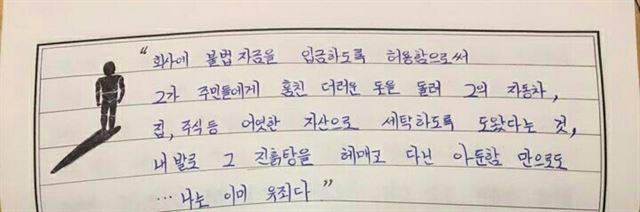 “ 회사에 불법자금을 입금하도록 허용함으로써
그가 주민들에게 훔친 더러운 돈을 돌려 그의 자동차,
집, 주식등 어엿한 자산으로 세탁하도록 도왔다는 것,
내 발로 그 진흙탕을 헤매고 다닌 아둔함 만으로도
… 나는 이미 유죄다 ”